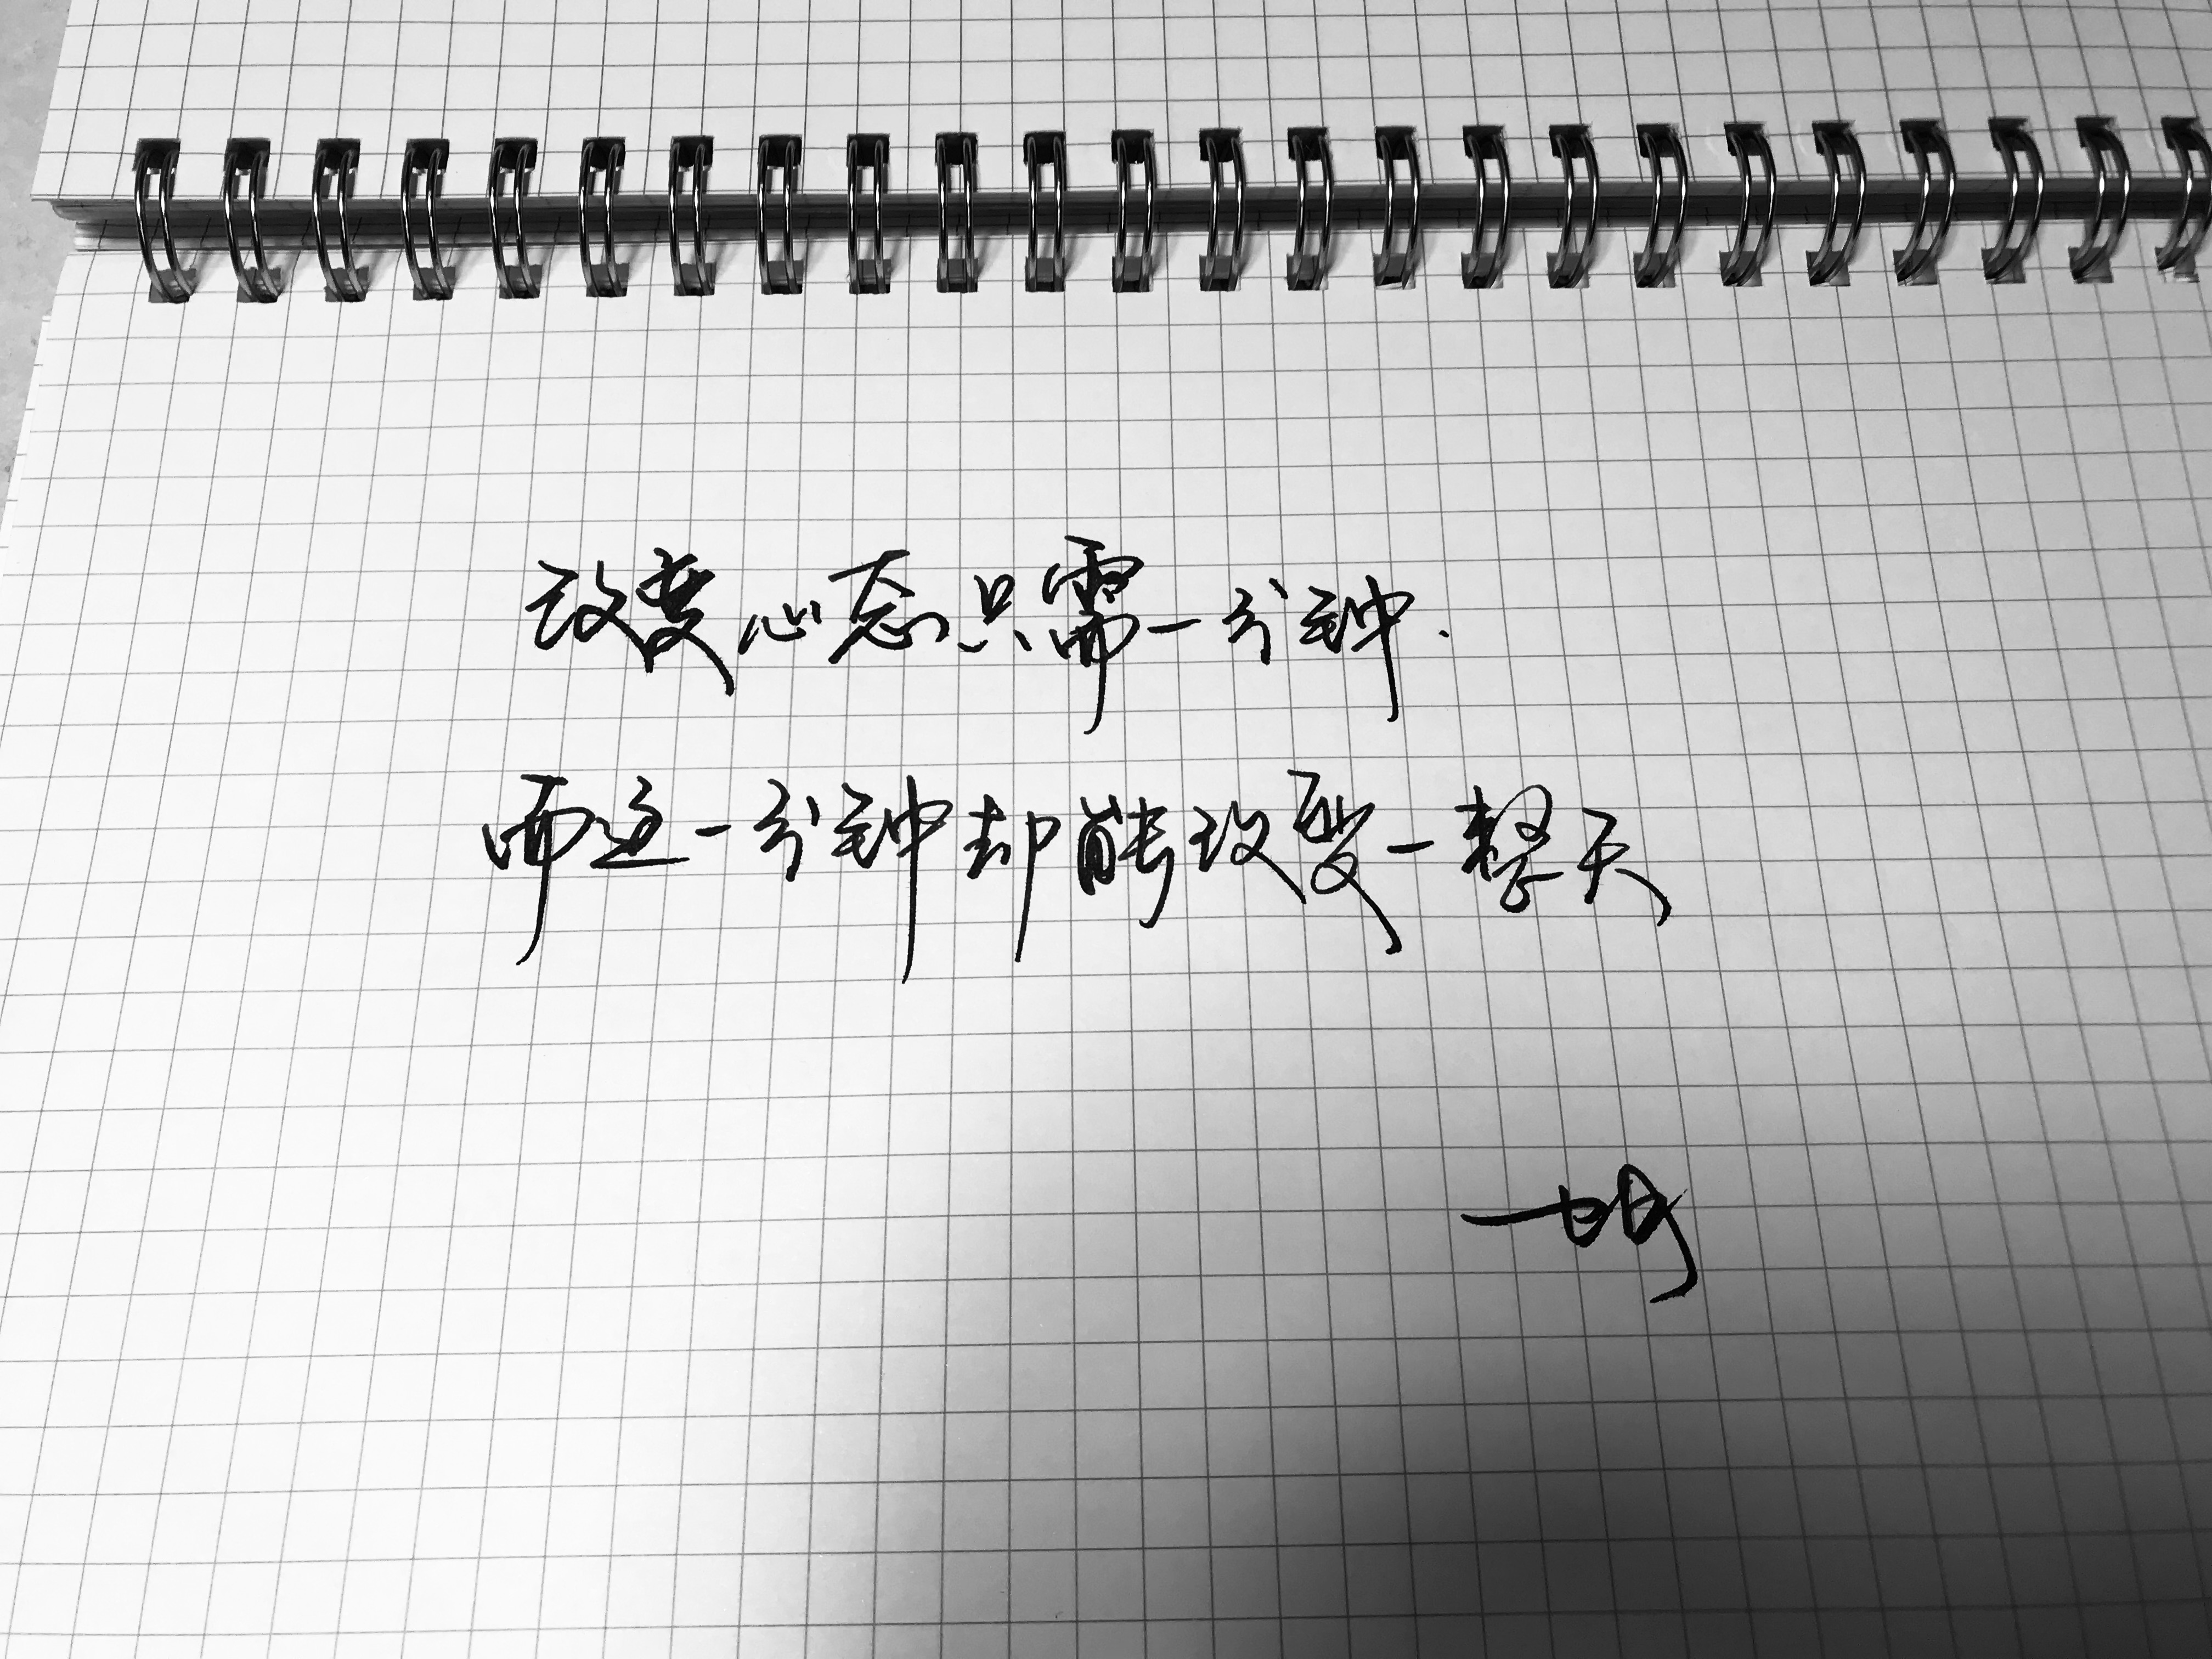 改变心态只需一分钟.
而这一分钟却能改变一整天